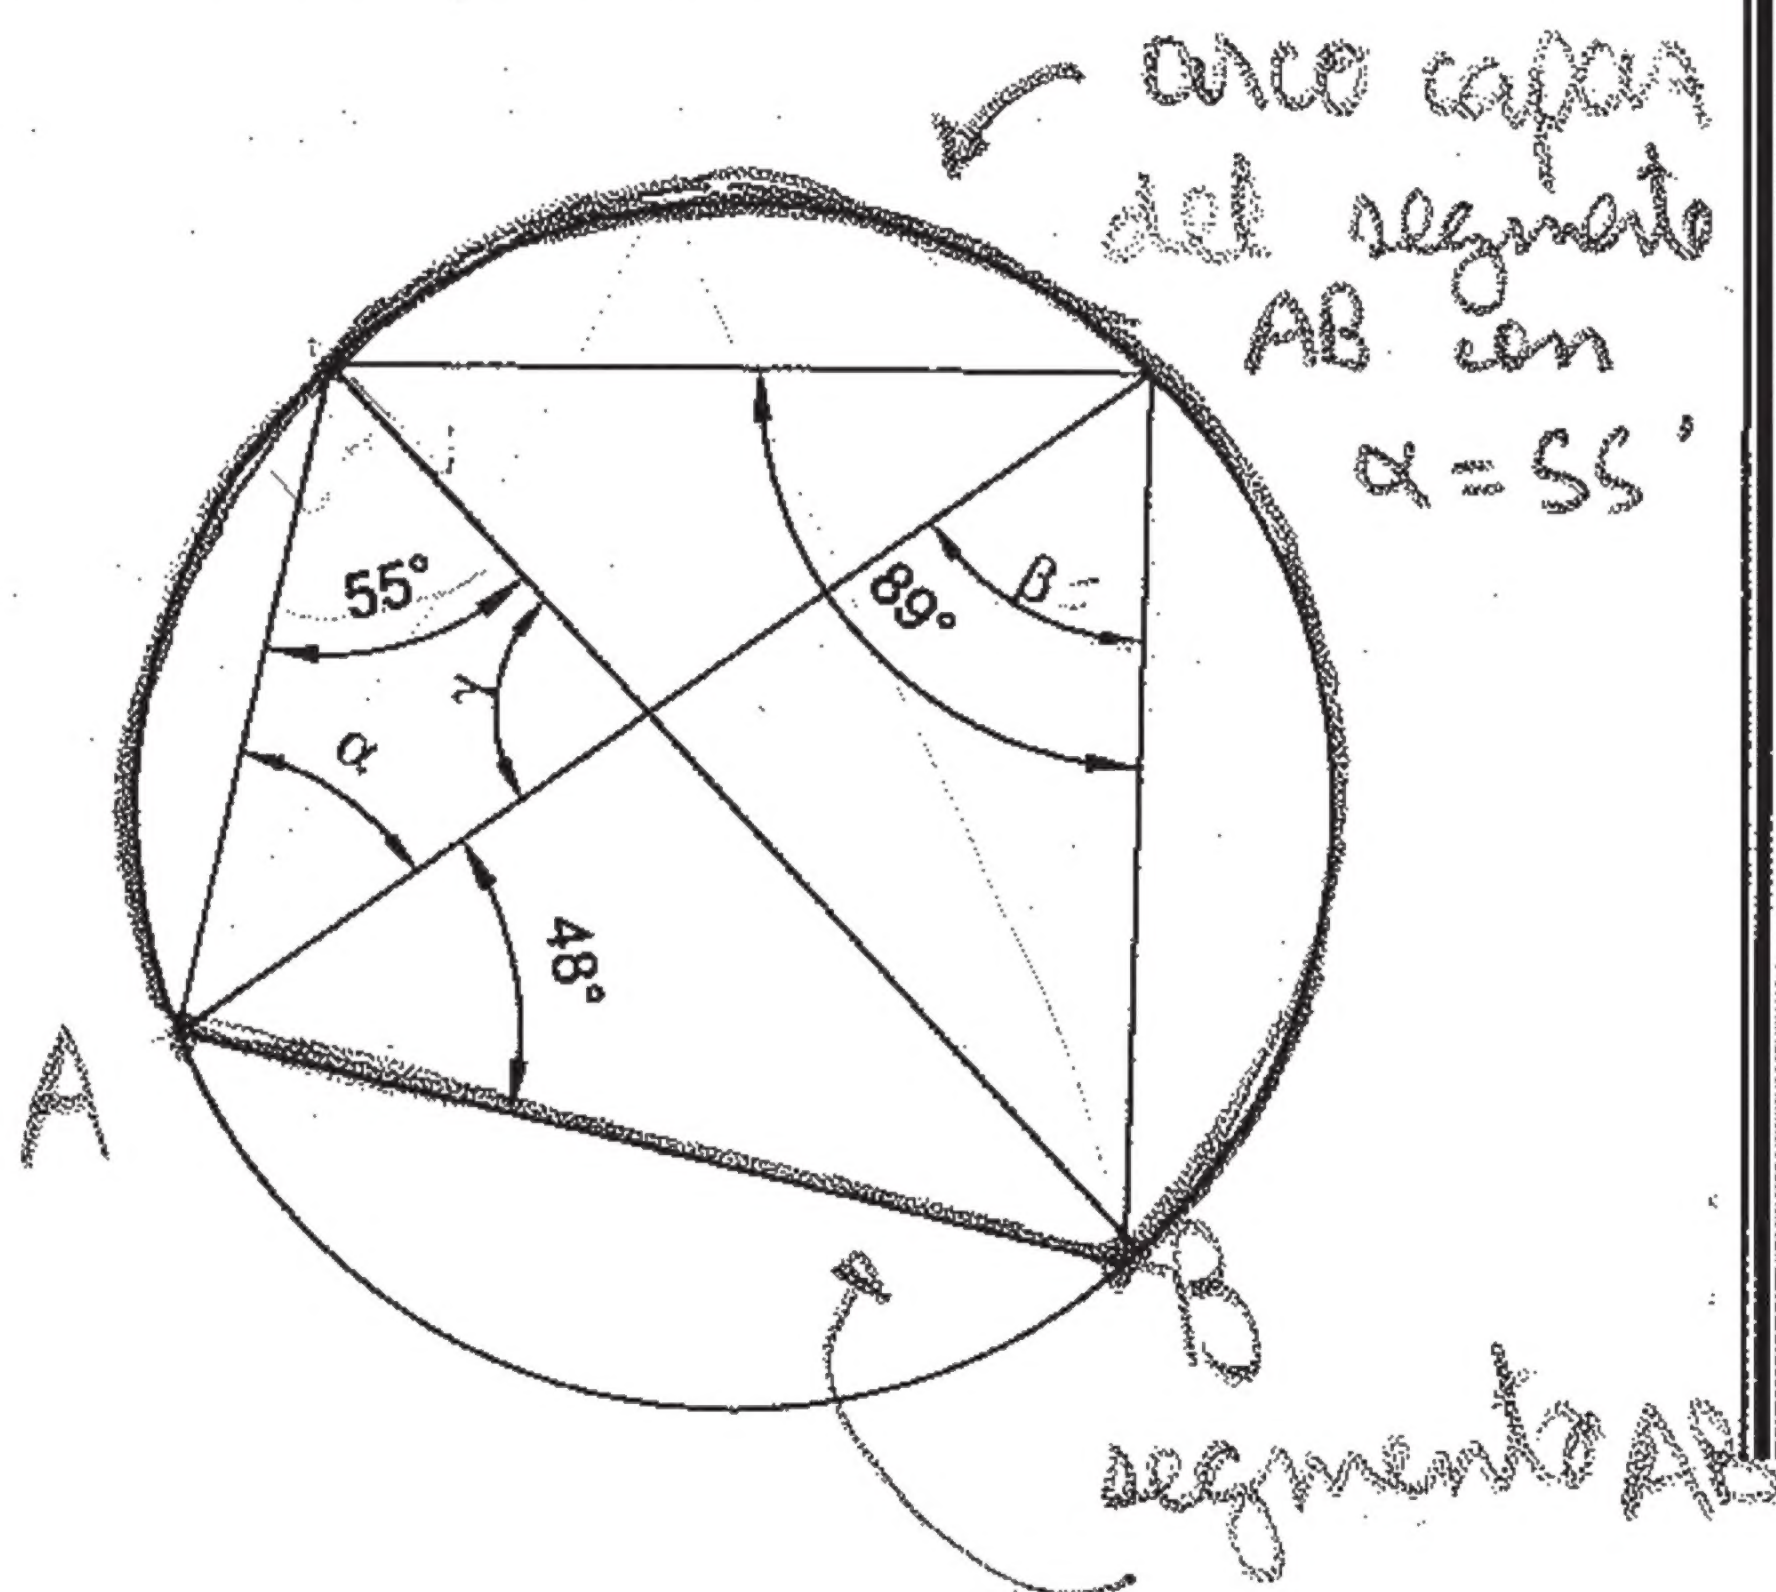 arco capaz
del segmento
AB con
α = 55°
55°
β =
89°
γ
α
48°
A
B
segmento AB